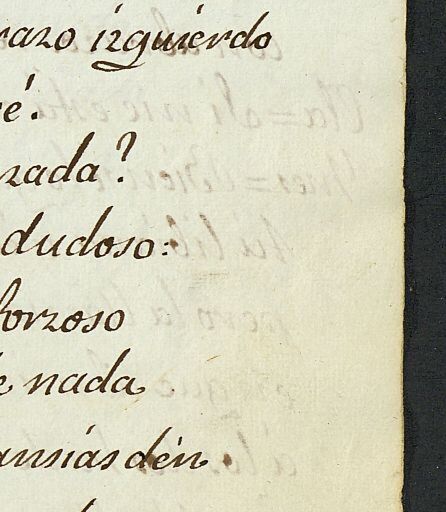 razo izquierdo
é.
zada?
dudoso:
forzoso
e nada
ansias dén.